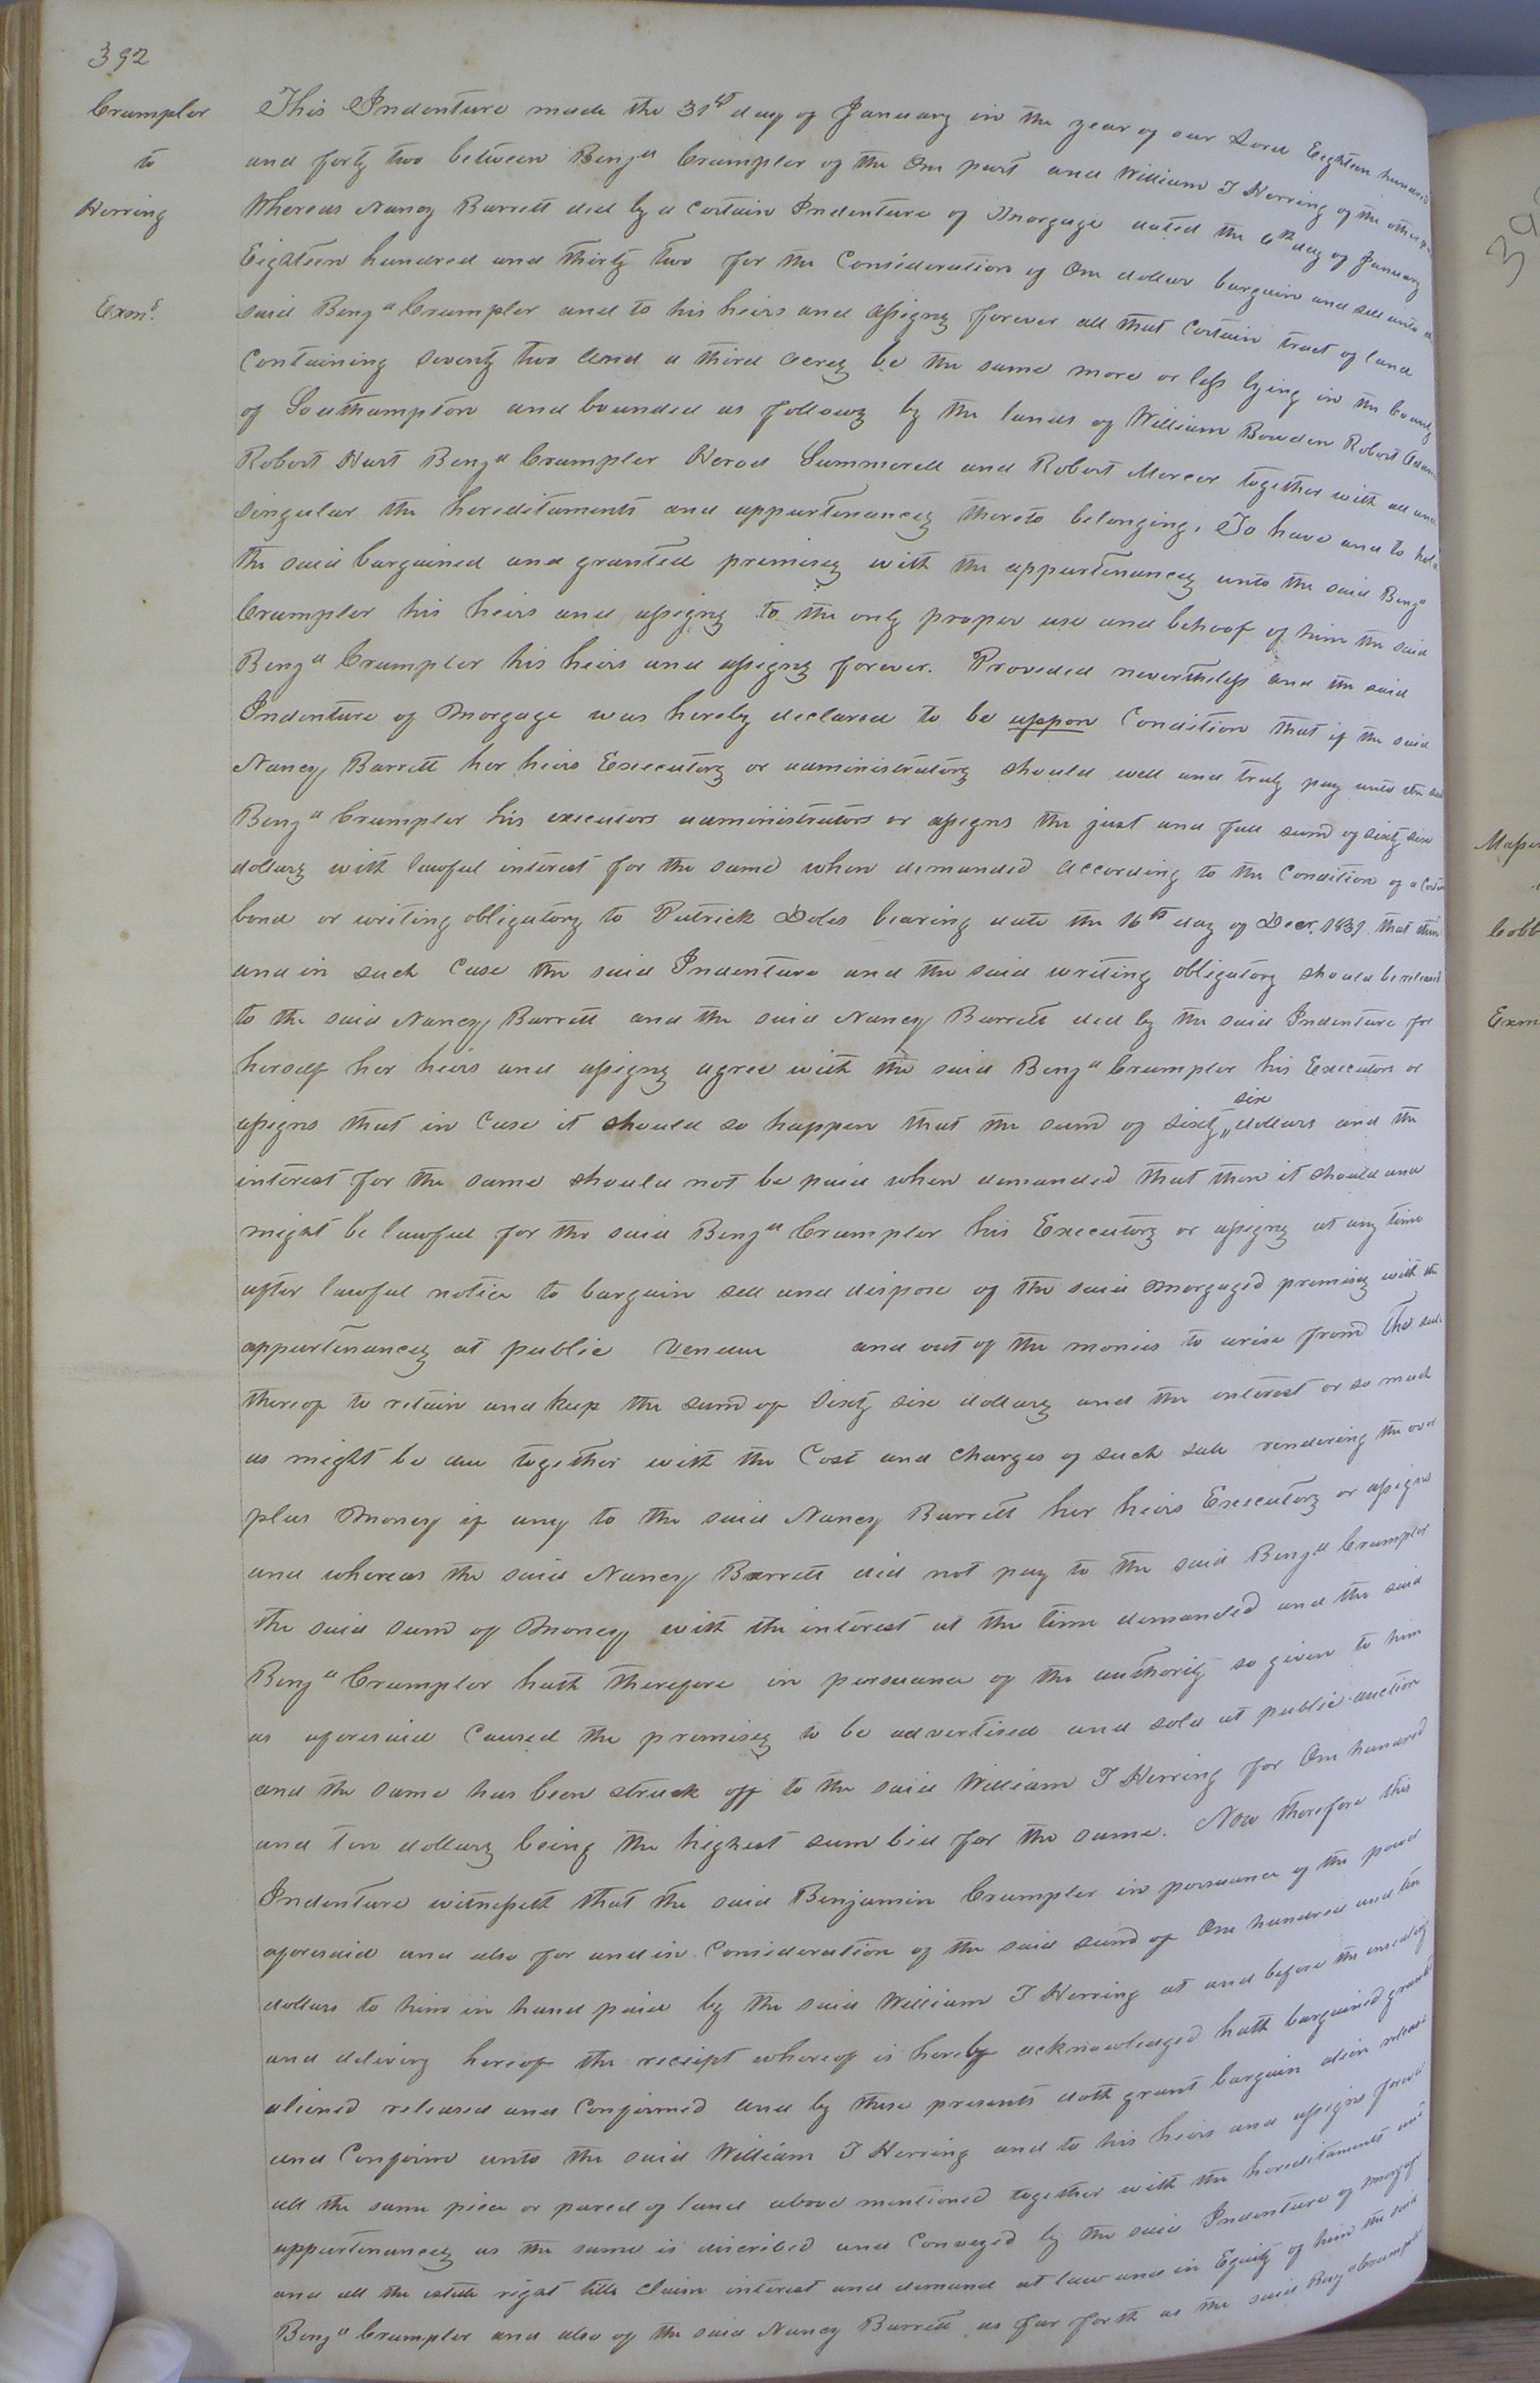 392
Crumpler
to
Herring
Exmd.
This Indenture made the 31st day of January in the year of our Lord Eighteen hundred
and forty two between Benja Crumpler of the One part and William J Herring of the other
Whereas Nancy Barrett did by a certain Indenture of Morgage dated the 6th day of January
Eighteen hundred and thirty two for the Consideration of One dollar bargain and sell unto
said Benja Crumpler and to his heirs and assigns forever all that certain tract of land
Containing seventy two and a third acres be the same more or less lying in the County
of Southampton and bounded as follows by the lands of William Bowden Robert
Robert Hart Benja Crumpler Herod Summerell and Robert Mercer together with all and
singular the hereditaments and appurtenances thereto belonging. To have and to hold
the said bargained and granted premises with the appurtenances unto the said Benja
Crumpler his heirs and assigns to the only proper use and behoof of him the said
Benja Crumpler his heirs and assigns forever. Proveded nevertheless and the said
Indenture of Morgage was hereby declared to be uppon Condition that if the said
Nancy Barrett her heirs Executors or administrators should well and truly pay unto the said
Benja Crumpler his executors administrators or assigns the just and full sum of sixty six
dollars with lawful interest for the same when demanded according to the Condition of a
bond or writing obligatory to Patrick Doles bearing date the 16th day of Decr. 1831 that then
and in such Case the said Indenture and the said writing obligatory should be released
to the said Nancy Barrett and the said Nancy Barrett did by the said Indenture for
herself her heirs and assigns agree with the said Benja Crumpler his Executors or
six
assigns that in Case it should so happen that the sum of sixty dollars and the
interest for the same should not be paid when demanded that then it should and
might be lawful for the said Benja Crumpler his Executors or assigns at any time
after lawful notice to bargain sell and dispose of the said morgaged premises with the
appurtenances at public Vendue and out of the monies to arise from the sale
thereof to retain and keep the sum of Sixty six dollars and the interest or so much
as might be due together with the Cost and Charges of such sale rendering the over
plus Money if any to the said Nancy Barrett her heirs Executors or assigns
and whereas the said Nancy Barrett did not pay to the said Benja Crumpler
the said sum of Money with the interest at the time demanded and the said
Benja Crumpler hath therefore in persuance of the authority so given to him
as aforesaid Caused the premises to be advertised and sold at public auction
and the same has been struck off to the said William J Herring for One hundred
and ten dollars being the highest sum bid for the same. Now therefore this
Indenture witnesseth that the said Benjamin Crumpler in persuance of the power
aforesaid and also for and in Consideration of the said sum of One hundred and ten
dollars to him in hand paid by the said William J Herring at and before the ensealing
and delivery hereof the receipt whereof is hereby acknowledged hath bargained granted
aliened released and Confirmed and by these presents doth grant bargain alien release
and Confirm unto the said William J Herring and to his heirs and assigns forever
all the same piece or parcel of land above mentioned together with the hereditaments and
appurtenances as the same is discribed and Conveyed by the said Indenture of Morgage
and all the estate right title Claim interest and demand at law and in Equity of him the said
Benja Crumpler and also of the said Nancy Barrett as far forth as the said Benja Crumpler